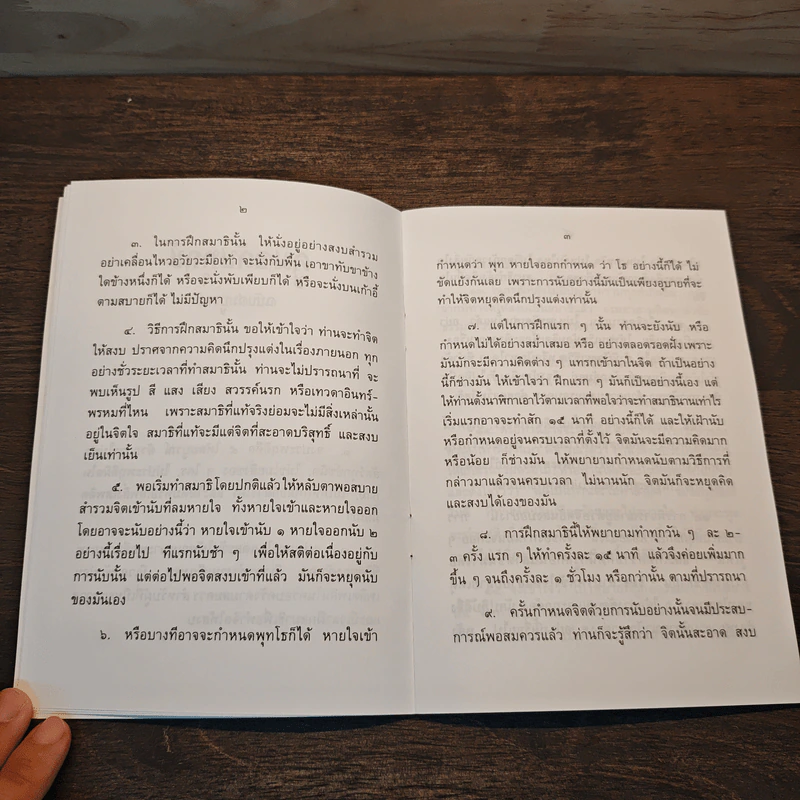 ๒
๓. ในการฝึกสมาธินั้น ให้นั่งอยู่อย่างสงบสำรวม
อย่าเคลื่อนไหวอวัยวะมือเท้า จะนั่งกับพื้น เอาขาทับขาข้าง
ใดข้างหนึ่งก็ได้ หรือจะนั่งพับเพียบก็ได้ หรือจะนั่งบนเก้าอี้
ตามสบายก็ได้ ไม่มีปัญหา
๔. วิธีการฝึกสมาธินั้น ขอให้เข้าใจว่า ท่านจะทำจิต
ให้สงบ ปราศจากความคิดนึกปรุงแต่งในเรื่องภายนอก ทุก
อย่างชั่วระยะเวลาที่ทำสมาธินั้น ท่านจะไม่ปรารถนาที่ จะ
พบเห็นรูป สี แสง เสียง สวรรค์นรก หรือเทวดาอินทร์-
พรหมที่ไหน เพราะสมาธิที่แท้จริงย่อมจะไม่มีสิ่งเหล่านั้น
อยู่ในจิตใจ สมาธิที่แท้จะมีแต่จิตที่สะอาดบริสุทธิ์ และสงบ
เย็นเท่านั้น
๕. พอเริ่มทำสมาธิโดยปกติแล้วให้หลับตาพอสบาย
สำรวมจิตเข้านับที่ลมหายใจ ทั้งหายใจเข้าและหายใจออก
โดยอาจจะนับอย่างนี้ว่า หายใจเข้านับ ๑ หายใจออกนับ ๒
อย่างนี้เรื่อยไป ที่แรกนับช้า ๆ เพื่อให้สติต่อเนื่องอยู่กับ
การนับนั้น แต่ต่อไปพอจิตสงบเข้าที่แล้ว มันก็จะหยุดนับ
ของมันเอง
๖. หรือบางทีอาจจะกำหนดพุทโธก็ได้ หายใจเข้า
๓
กำหนดว่า พุท หายใจออกกำหนด ว่า โธ อย่างนี้ก็ได้ ไม่
ขัดแย้งกันเลย เพราะการนับอย่างนี้มันเป็นเพียงอุบายที่จะ
ทำให้จิตหยุดคิดนึกปรุงแต่งเท่านั้น
๗. แต่ในการฝึกแรก ๆ นั้น ท่านจะยังนับ หรือ
กำหนดไม่ได้อย่างสม่ำเสมอ หรือ อย่างตลอดรอดฝั่ง เพราะ
มันมักจะมีความคิดต่าง ๆ แทรกเข้ามาในจิต ถ้าเป็นอย่าง
นี้ก็ช่างมัน ให้เข้าใจว่า ฝึกแรก ๆ มันก็เป็นอย่างนี้เอง แต่
ให้ท่านตั้งนาฬิกาเอาไว้ตามเวลาที่พอใจว่าจะทำสมาธินานเท่าไร
เริ่มแรกอาจจะทำสัก ๑๕ นาที อย่างนี้ก็ได้ และให้เฝ้านับ
หรือกำหนดอยู่จนครบเวลาที่ตั้งไว้ จิตมันจะมีความคิดมาก
หรือน้อย ก็ช่างมัน ให้พยายามกำหนดนับตามวิธีการที่
กล่าวมาแล้วจนครบเวลา ไม่นานนัก จิตมันก็จะหยุดคิด
และสงบได้เองของมัน
๘. การฝึกสมาธินี้ให้พยายามทำทุกวัน ๆ ละ ๒-
๓ ครั้ง แรก ๆ ให้ทำครั้งละ ๑๕ นาที แล้วจึงค่อยเพิ่มมาก
ขึ้น ๆ จนถึงครั้งละ ๑ ชั่วโมง หรือกว่านั้น ตามที่ปรารถนา
๙. ครั้นกำหนดจิตด้วยการนับอย่างนั้นจนมีประสบ-
การณ์พอสมควรแล้ว ท่านก็จะรู้สึกว่า จิตนั้นสะอาด สงบ